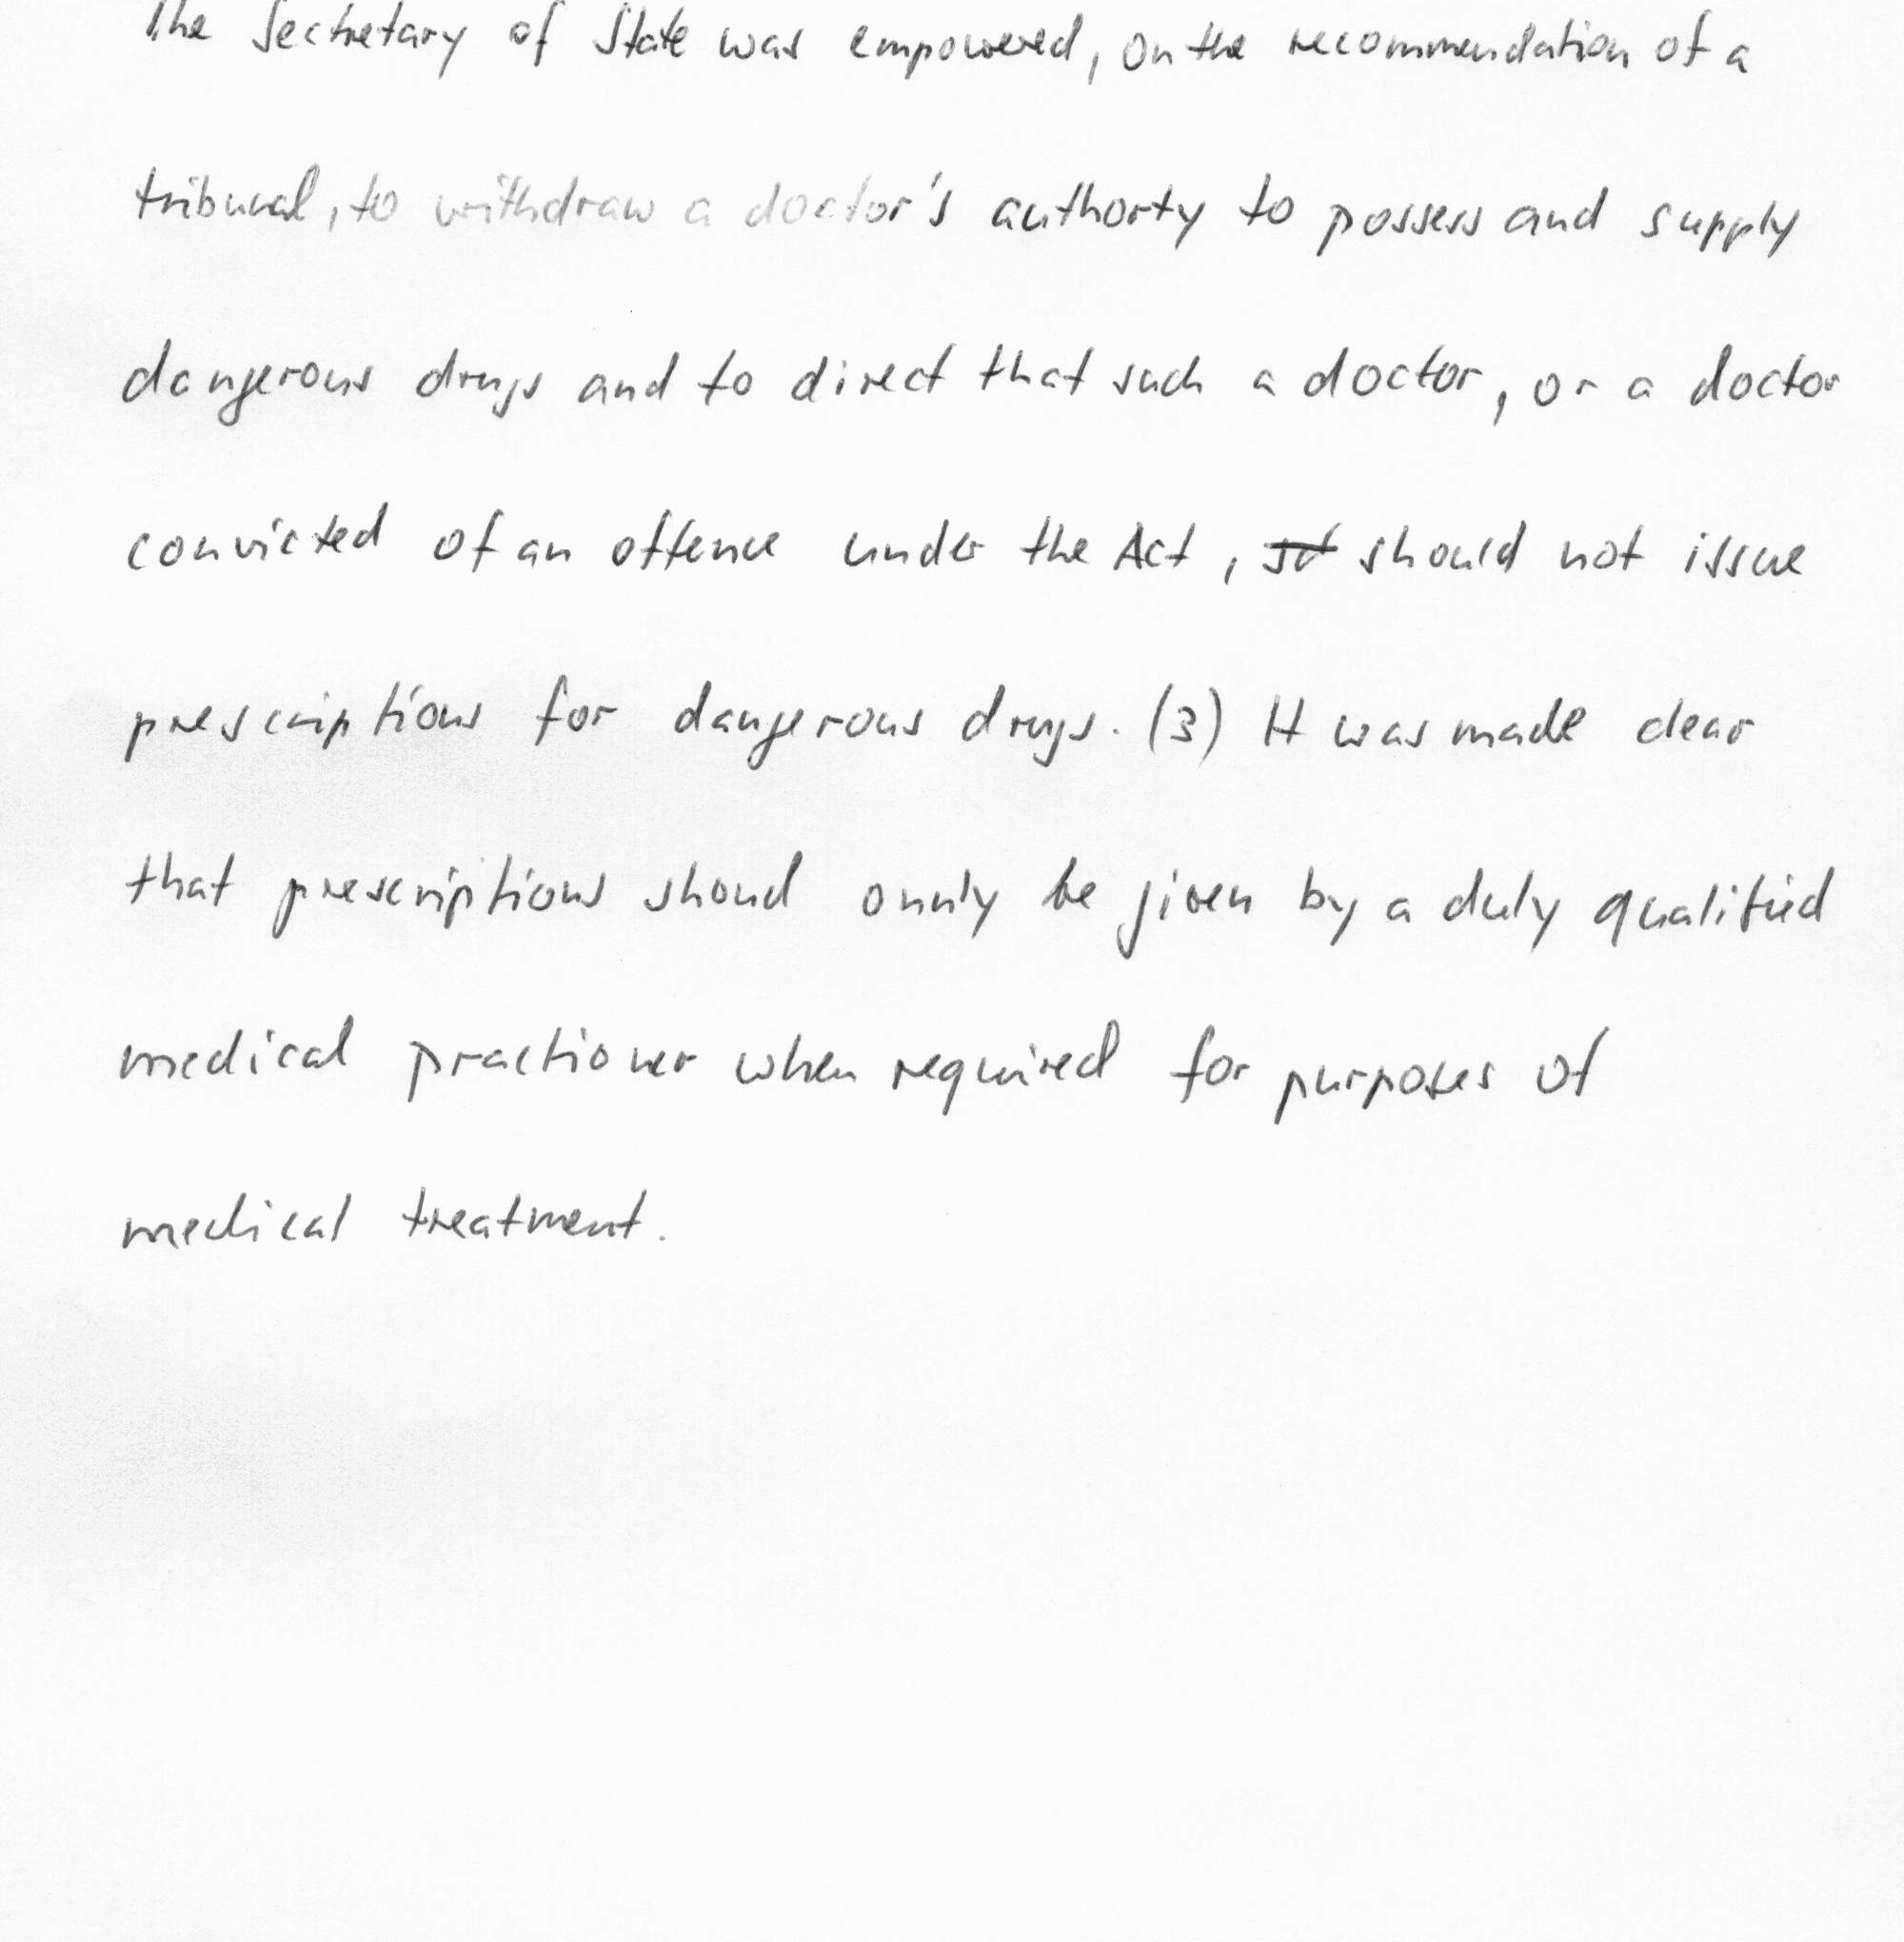 The Sectretary of State was empowered, on the recommendation of a
tribunal, to withdraw a doctor's authorty to possess and supply
dangerous drugs and to direct that such a doctor, or a doctor
convicted of an offence under the Act, should not issue
prescriptions for dangerous drugs. (3) It was made clear
that prescriptions shoud onnly be given by a duly qualified
medical practioner when required for purposes of
medical treatment.